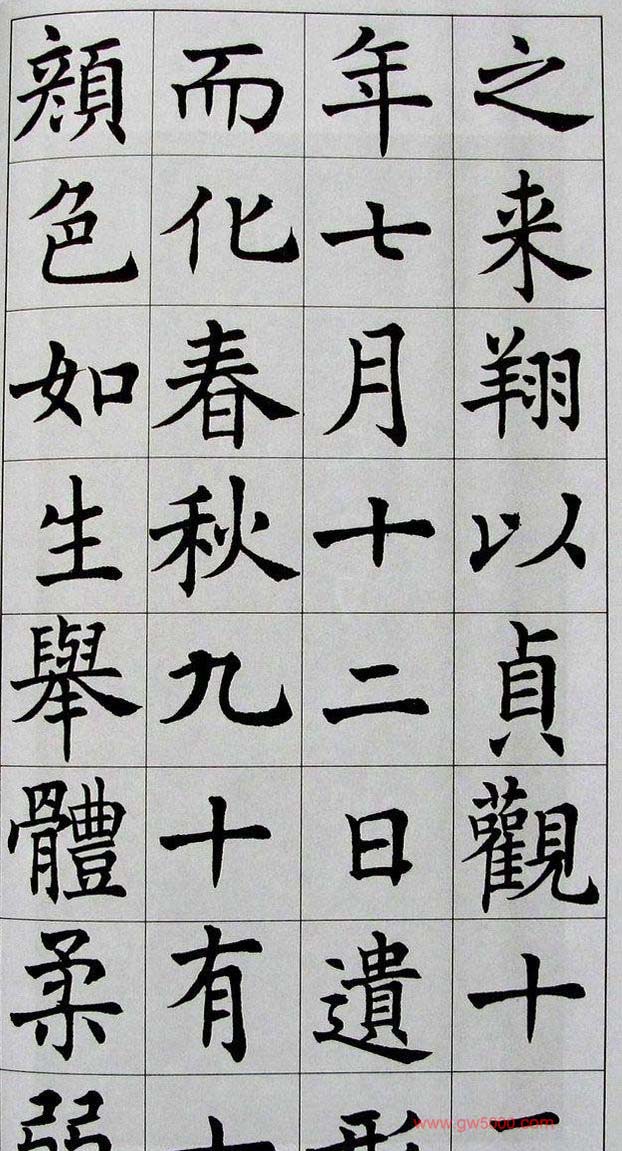 之来翔以貞觀十
年七月十二日遺形
而化春秋九十有
顔色如生舉體柔弱
www.gw5000.com